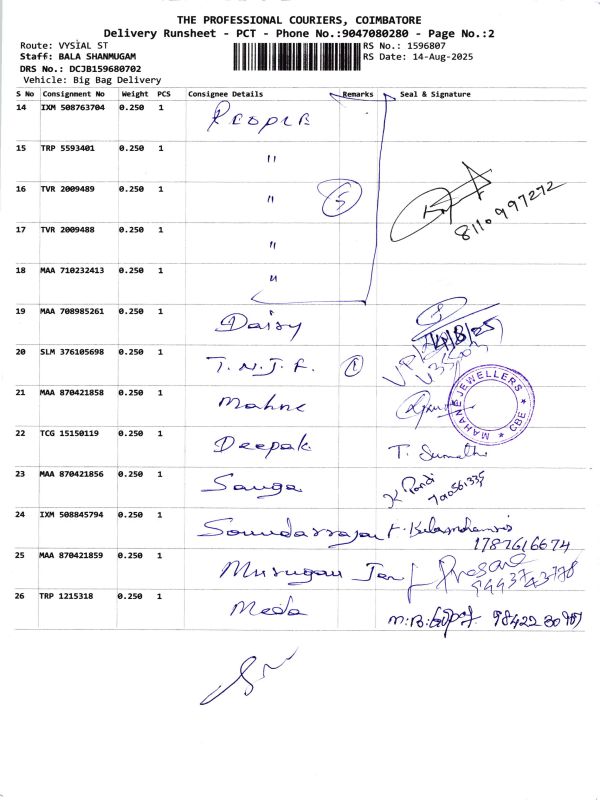 THE PROFESSIONAL COURIERS, COIMBATORE
Delivery Runsheet - PCT - Phone No.:9047080280 - Page No.:2
Route: VYSIAL ST
RS No.: 1596807
Staff: BALA SHANMUGAM
RS Date: 14-Aug-2025
DRS No.: DCJB159680702
Vehicle: Big Bag Delivery
S No Consignment No Weight PCS Consignee Details Remarks Seal & Signature
14 IXM 508763704 0.250 1 PEOPLE
15 TRP 5593401 0.250 1 "
16 TVR 2009489 0.250 1 " 5
8110997272
17 TVR 2009488 0.250 1 "
18 MAA 710232413 0.250 1 "
19 MAA 708985261 0.250 1 Daisy
14/8/25
20 SLM 376105698 0.250 1 T.N.J.F. 1
21 MAA 870421858 0.250 1 Mahne
MAHANE JEWELLERS CBE
22 TCG 15150119 0.250 1 Deepak T. Sumathi
23 MAA 870421856 0.250 1 Sanga K Pandi
24 IXM 508845794 0.250 1 Soundarrajan
1787616674
25 MAA 870421859 0.250 1 Murugan Prasad
26 TRP 1215318 0.250 1 Meda M.B.